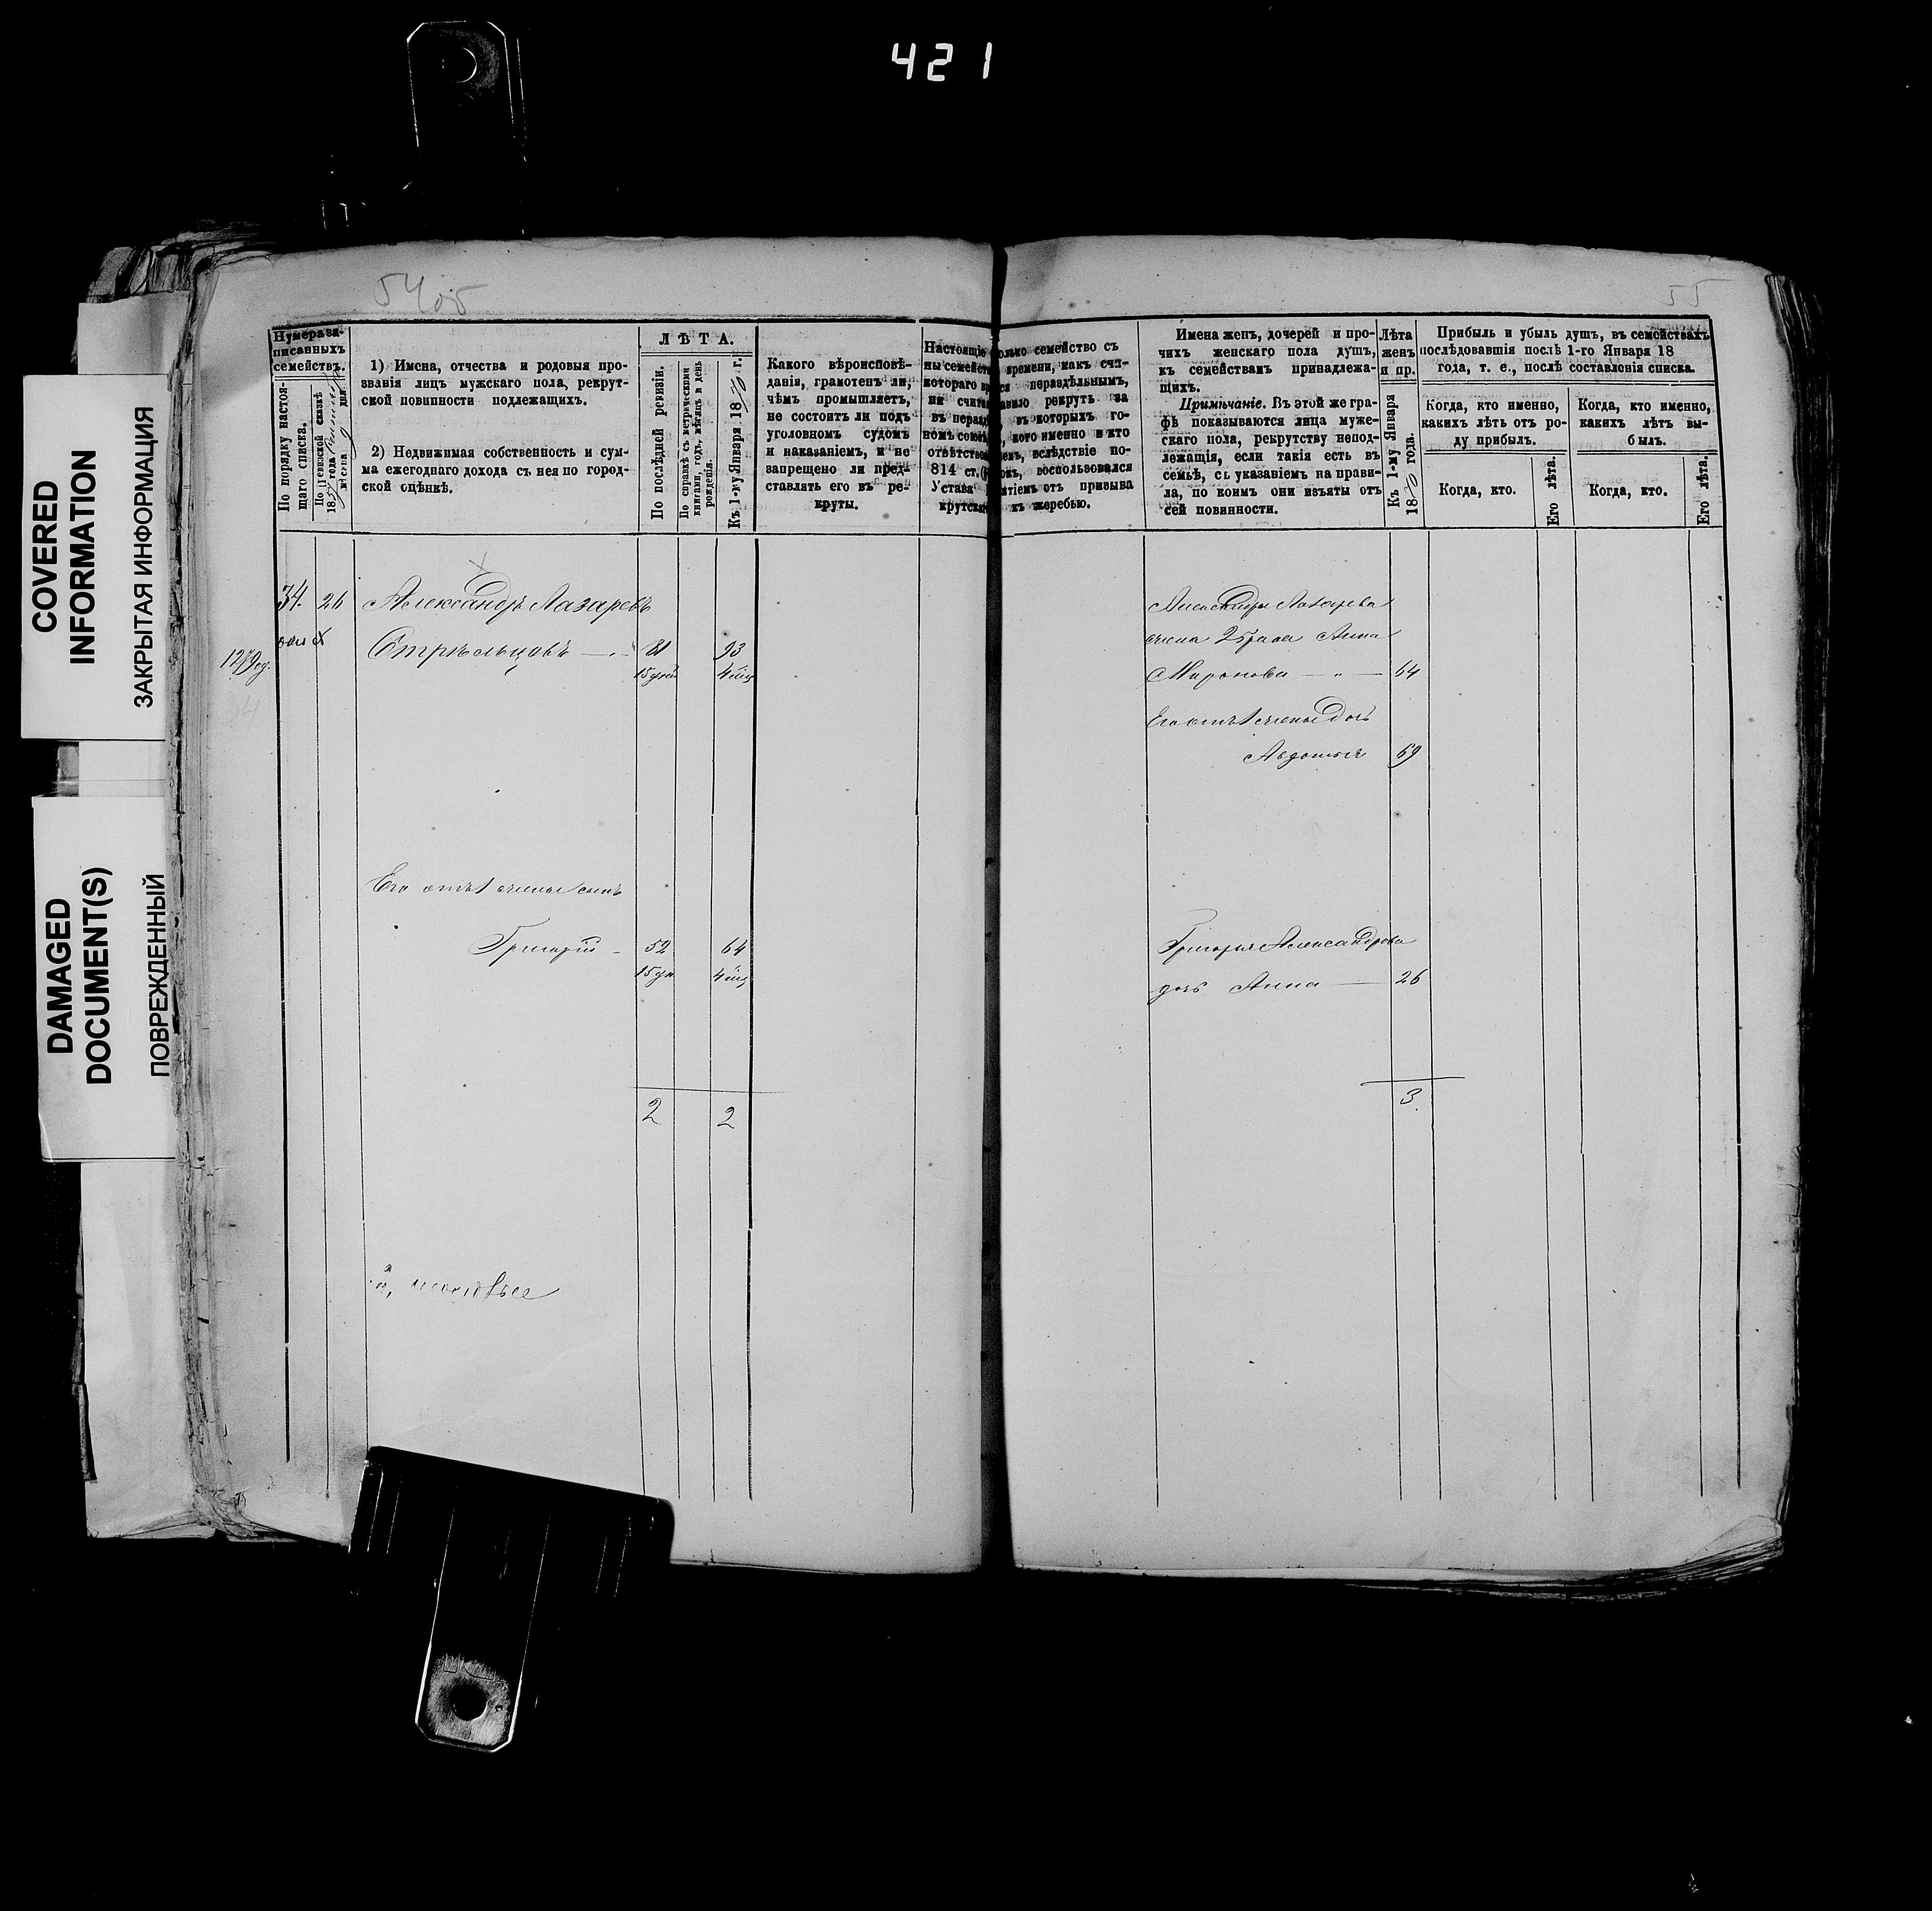 421
COVERED
INFORMATION
ЗАКРЫТАЯ ИНФОРМАЦИЯ
DAMAGED
DOCUMENT(S)
ПОВРЕЖДЕННЫЙ
55
Нумера за-
писанныхъ
семействъ.
По порядку настоя-
щаго списка.
По ревизской сказкѣ
18 года
мѣсяца 9 дня.
1) Имена, отчества и родовыя про-
званія лицъ мужскаго пола, рекрут-
ской повинности подлежащихъ.
2) Недвижимая собственность и сум-
ма ежегоднаго дохода съ нея по город-
ской оцѣнкѣ.
ЛѢТА.
По послѣдней ревизіи.
По справкѣ съ метрическими
книгами, годъ, мѣсяцъ и день
рожденія.
Къ 1-му Января 1870 г.
Какого вѣроисповѣ-
данія, грамотенъ ли,
чѣмъ промышляетъ,
не состоитъ ли подъ
уголовномъ судомъ
и наказаніемъ, и не
запрещено ли пред-
ставлять его въ ре-
круты.
Настоящіе
ны семейств
котораго вр
ни счита
въ нераз
номъ союз
отвѣтствов
814 ст.
Устава
крутск
олько семейство съ
времени, какъ счи-
ся нераздѣльнымъ,
авило рекрутъ за
въ которыхъ го-
кого именно и кто
вслѣдствіе по-
воспользовался
тіемъ отъ призыва
къ жеребью.
Имена женъ, дочерей и про-
чихъ женскаго пола душъ,
къ семействамъ принадлежа-
щихъ.
Примѣчаніе. Въ этой же гра-
фѣ показываются лица муже-
скаго пола, рекрутству непод-
лежащія, если такія есть въ
семьѣ, съ указаніемъ на прави-
ла, по коимъ они изъяты отъ
сей повинности.
Лѣта
женъ
и пр.
Къ 1-му Января
1870 года.
Прибыль и убыль душъ, въ семействахъ
послѣдовавшія послѣ 1-го Января 18
года, т. е., послѣ составленія списка.
Когда, кто именно,
какихъ лѣтъ отъ ро-
ду прибылъ.
Когда, кто именно,
какихъ лѣтъ вы-
былъ.
Когда, кто.
Его лѣта.
Когда, кто.
Его лѣта.
34. 26 Александръ Лазаревъ
Стрѣльцовъ 81 93
Александра Лазарева
жена 2 брака Анна
Миронова — 64
Его отъ 1 жены дочь
Авдотья 69
Его отъ 1 жены сынъ
Григорій 52 64
Григорья Александрова
дочь Анна — 26
2 2
3.